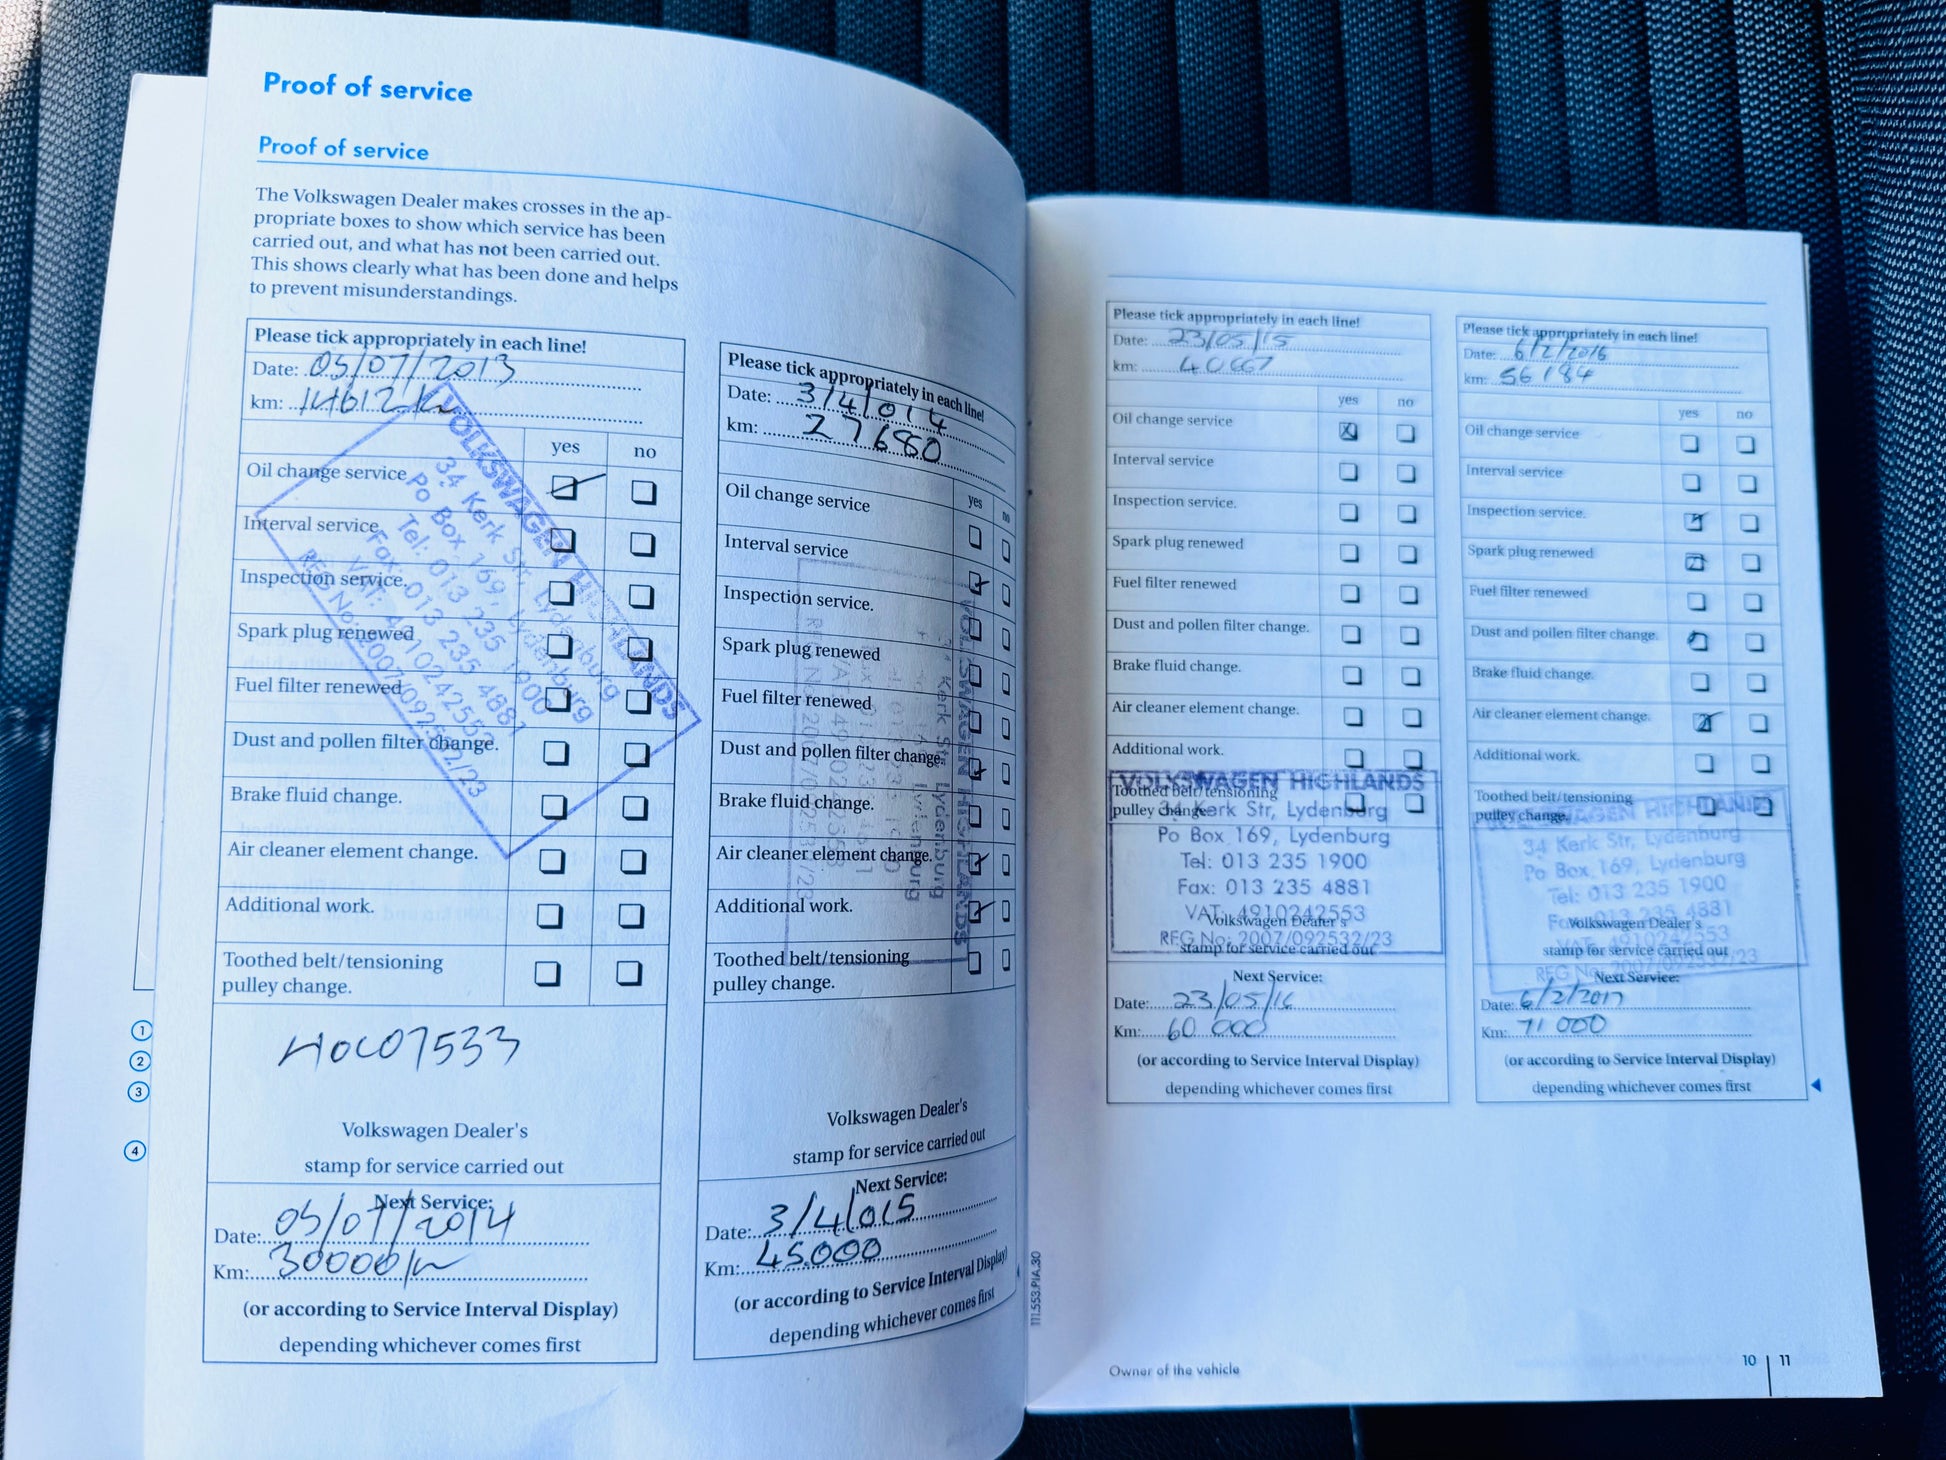 Proof of service
Proof of service
The Volkswagen Dealer makes crosses in the ap-
propriate boxes to show which service has been
carried out, and what has not been carried out.
This shows clearly what has been done and helps
to prevent misunderstandings.
Please tick appropriately in each line!
Date: 05/07/2013
km: 14612 km
yes no
Oil change service
Interval service
Inspection service.
Spark plug renewed
Fuel filter renewed
Dust and pollen filter change.
Brake fluid change.
Air cleaner element change.
Additional work.
Toothed belt/tensioning
pulley change.
VOLKSWAGEN HIGHLANDS
34 Kerk Str, Lydenburg
Po Box 169, Lydenburg
Tel: 013 235 1900
Fax: 013 235 4881
VAT: 4910242553
REG No: 2007/092532/23
Volkswagen Dealer's
stamp for service carried out
Next Service:
Date: 05/07/2014
Km: 30000km
(or according to Service Interval Display)
depending whichever comes first
Please tick appropriately in each line!
Date: 3/4/014
km: 27680
yes no
Oil change service
Interval service
Inspection service.
Spark plug renewed
Fuel filter renewed
Dust and pollen filter change.
Brake fluid change.
Air cleaner element change.
Additional work.
Toothed belt/tensioning
pulley change.
VOLKSWAGEN HIGHLANDS
34 Kerk Str, Lydenburg
Volkswagen Dealer's
stamp for service carried out
Next Service:
Date: 3/4/015
Km: 45.000
(or according to Service Interval Display)
depending whichever comes first
Please tick appropriately in each line!
Date: 23/05/15
km: 40667
yes no
Oil change service
Interval service
Inspection service.
Spark plug renewed
Fuel filter renewed
Dust and pollen filter change.
Brake fluid change.
Air cleaner element change.
Additional work.
Toothed belt/tensioning
pulley change.
VOLKSWAGEN HIGHLANDS
34 Kerk Str, Lydenburg
Po Box 169, Lydenburg
Tel: 013 235 1900
Fax: 013 235 4881
VAT: 4910242553
REG No: 2007/092532/23
Volkswagen Dealer's
stamp for service carried out
Next Service:
Date: 23/05/16
Km: 60 000
(or according to Service Interval Display)
depending whichever comes first
Please tick appropriately in each line!
Date: 6/2/2016
km: 56184
yes no
Oil change service
Interval service
Inspection service.
Spark plug renewed
Fuel filter renewed
Dust and pollen filter change.
Brake fluid change.
Air cleaner element change.
Additional work.
Toothed belt/tensioning
pulley change.
VOLKSWAGEN HIGHLANDS
34 Kerk Str, Lydenburg
Po Box 169, Lydenburg
Tel: 013 235 1900
Fax: 013 235 4881
VAT: 4910242553
REG No: 2007/092532/23
Volkswagen Dealer's
stamp for service carried out
Next Service:
Date: 6/2/2017
Km: 71 000
(or according to Service Interval Display)
depending whichever comes first
1
2
3
4
111.553.PIA.30
Owner of the vehicle
10 | 11